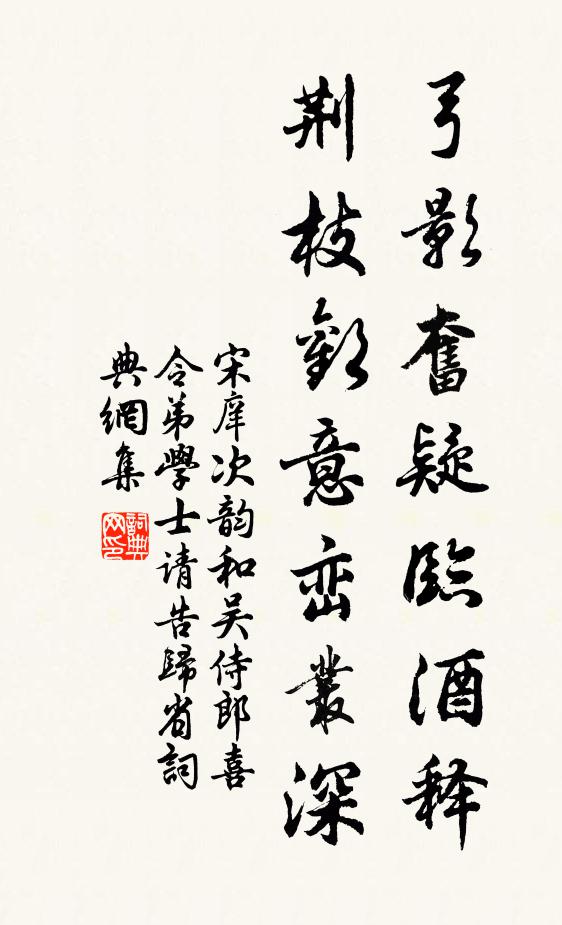 弓影奮疑臨酒释
荆枝歡意峦叢深
宋庠次韵和吴侍郎喜
令弟學士请告歸省詞
典網集
詞典
网印